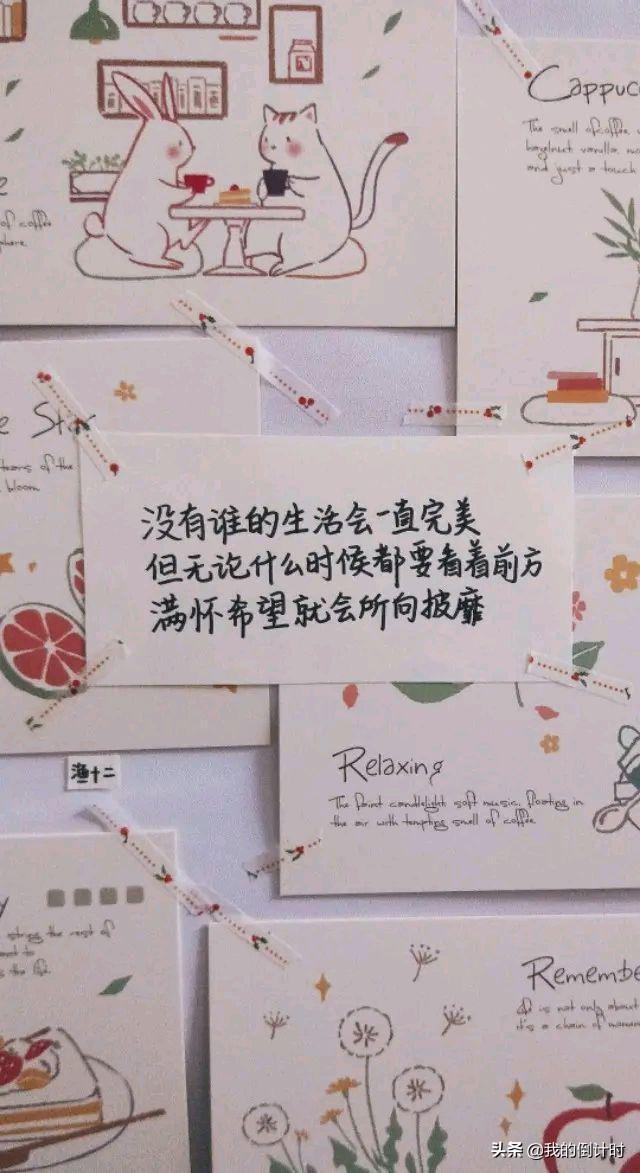 Cappuc
The smell of coffee
hazelnut vanilla
and just a touch
of coffee
没有谁的生活会一直完美
但无论什么时候都要看着前方
满怀希望就会所向披靡
of the
bloom
渔十二
Relaxing
The faint candlelight soft music, floating in
the air with tempting smell of coffee
string the rest of
the life.
Remembe
is not only about
it's a chain of
头条 @我的倒计时